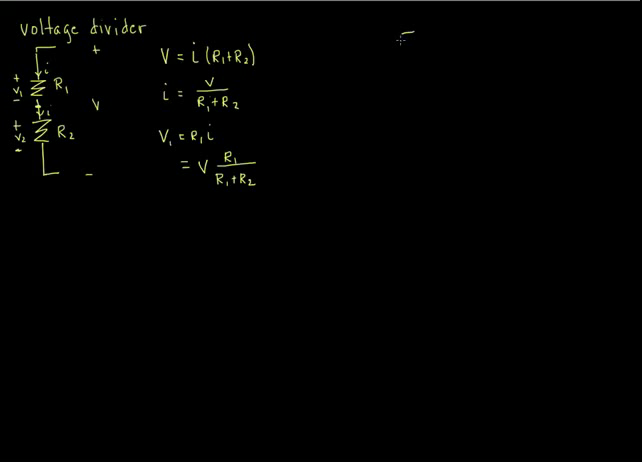 voltage divider
+
i
+
v₁
-
R₁
i
v
+
v₂
-
R₂
-
V = i (R₁+R₂)
i = v / R₁+R₂
V₁ = R₁ i
= v R₁ / R₁+R₂